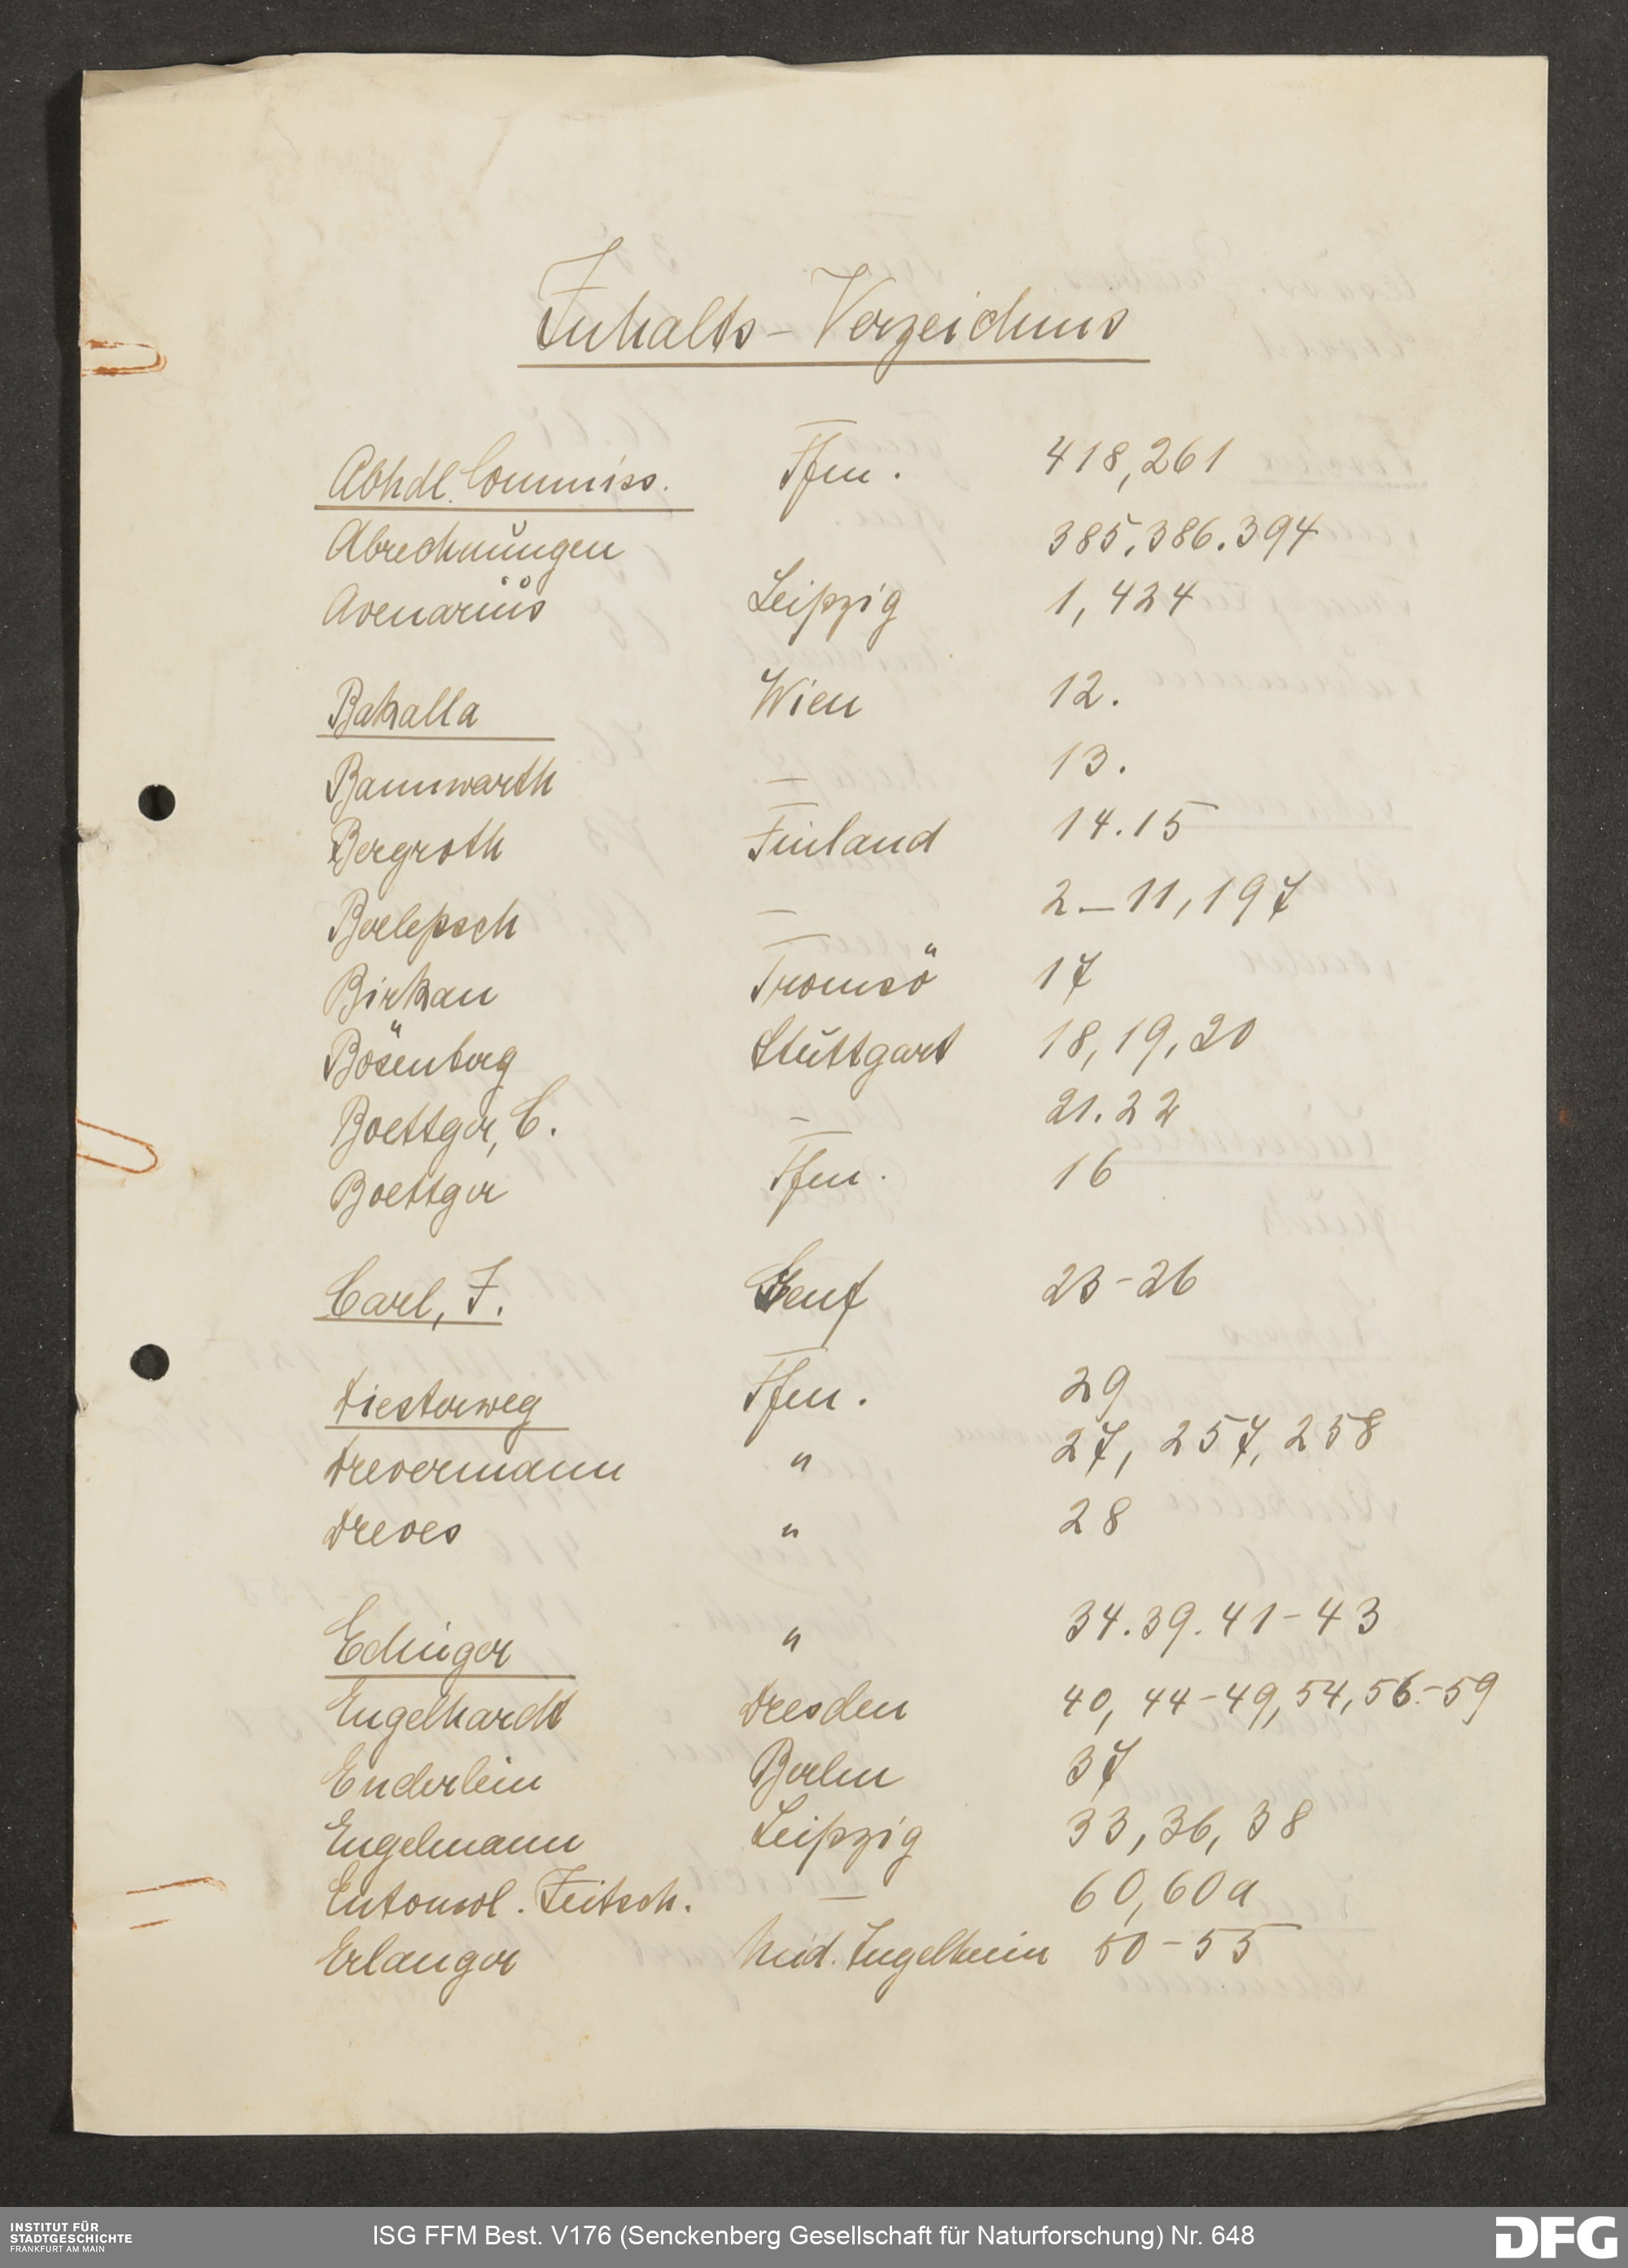 Inhalts-Verzeichnis
Abhdl. Commiss. Ffm. 418,261
Abrechnungen 385.386.394
Avenarius Leipzig 1, 424
Bakalla Wien 12.
Bannwarth — 13.
Bergroth Finland 14.15
Berlepsch — 2—11, 197
Birkan Tromsö 17
Bösenberg Stuttgart 18,19,20
Boettger, C. — 21.22
Boettger Ffm. 16
Carl, J. Genf 23-26
Diesterweg Ffm. 29
Drevermann " 27, 257, 258
Dreves " 28
Edinger " 34.39.41-43
Engelhardt Dresden 40, 44-49, 54, 56.-59
Enderlein Berlin 37
Engelmann Leipzig 33, 36, 38
Entomol. Zeitsch. — 60, 60a
Erlanger Nied. Ingelheim 50-55
INSTITUT FÜR
STADTGESCHICHTE
FRANKFURT AM MAIN
ISG FFM Best. V176 (Senckenberg Gesellschaft für Naturforschung) Nr. 648
DFG